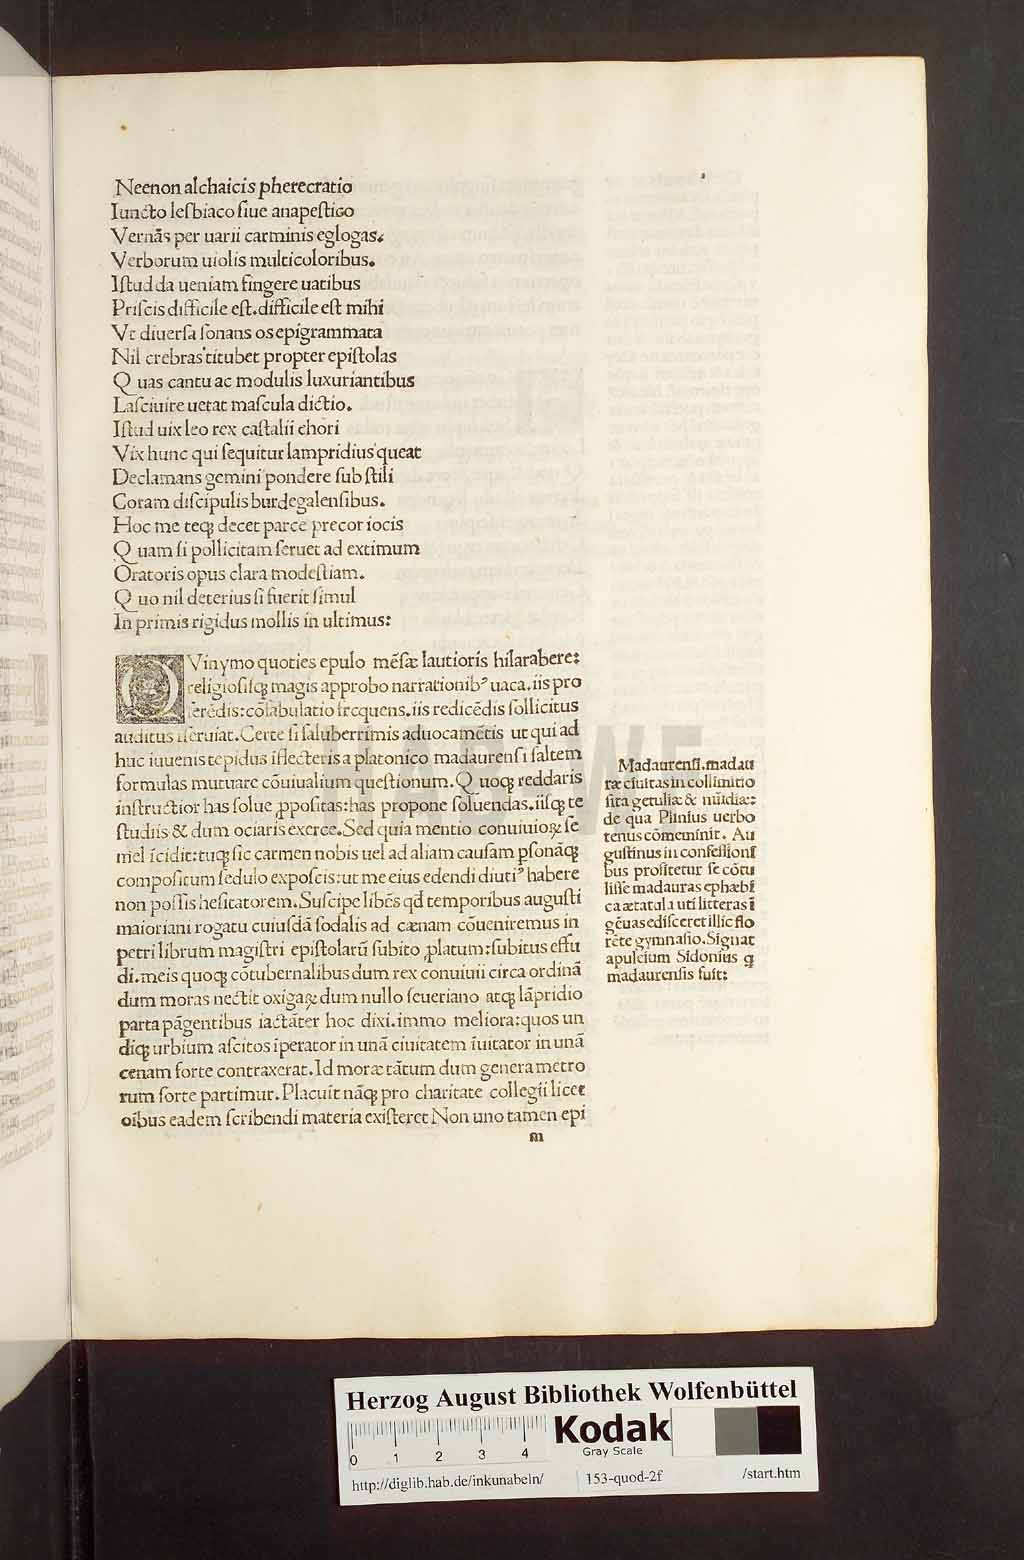 Necnon alchaicis pherecratio
Iuncto lesbiaco siue anapestico
Vernās per uarii carminis eglogas.
Verborum uiolis multicoloribus.
Istud da ueniam fingere uatibus
Priscis difficile est.difficile est mihi
Vt diuersa sonans os epigrammata
Nil crebras titubet propter epistolas
Q uas cantu ac modulis luxuriantibus
Lasciuire uetat mascula dictio.
Istud uix leo rex castalii chori
Vix hunc qui sequitur lampridius queat
Declamans gemini pondere sub stili
Coram discipulis burdegalensibus.
Hoc me teqȝ decet parce precor iocis
Q uam si pollicitam seruet ad extimum
Oratoris opus clara modestiam.
Q uo nil deterius si fuerit simul
In primis rigidus mollis in ultimus:
DVinymo quoties epulo mēsæ lautioris hilarabere:
religiosisqȝ magis approbo narrationibꝰ uaca.iis pro
ferēdis:cōfabulatio frequens.iis redicēdis sollicitus
auditus iseruiat.Certe si saluberrimis aduocamētis ut qui ad
huc iuuenis tepidus iflecteris a platonico madaurensi saltem
formulas mutuare cōuiualium questionum.Q uoqȝ reddaris
instructior has solue ꝓpositas:has propone soluendas.iisqȝ te
studiis & dum ociaris exerce.Sed quia mentio conuiuioꝝ se
mel īcidit:tuqȝ sic carmen nobis uel ad aliam causam psonāqȝ
compositum sedulo exposcis:ut me eius edendi diutiꝰ habere
non possis hesitatorem.Suscipe libēs qd̄ temporibus augusti
maioriani rogatu cuiusdā sodalis ad cænam cōueniremus in
petri librum magistri epistolarū subito ꝓlatum:subitus effu
di.meis quoqȝ cōtubernalibus dum rex conuiuii circa ordinā
dum moras nectit oxigaꝝ dum nullo seueriano atqȝ lāpridio
parta pāgentibus iactāter hoc dixi.immo meliora:quos un
diqȝ urbium ascitos īperator in unā ciuitatem īuitator in unā
cenam forte contraxerat.Id moræ tātum dum genera metro
rum sorte partimur.Placuit nāqȝ pro charitate collegii licet
oībus eadem scribendi materia existeret Non uno tamen epi
m
Madaurensi.madau
ræ ciuitas in collimitio
sita getuliæ & nūidiæ:
de qua Plinius uerbo
tenus cōmeminit. Au
gustinus in confessionī
bus profitetur se cōtu
lisse madauras ephæbī
ca ætatula uti litteras ī
gēuas edisceret illic flo
rēte gymnasio.Signat
apuleium Sidonius q
madaurensis fuit:
Herzog August Bibliothek Wolfenbüttel
0 1 2 3 4
Kodak
Gray Scale
http://diglib.hab.de/inkunabeln/ 153-quod-2f /start.htm